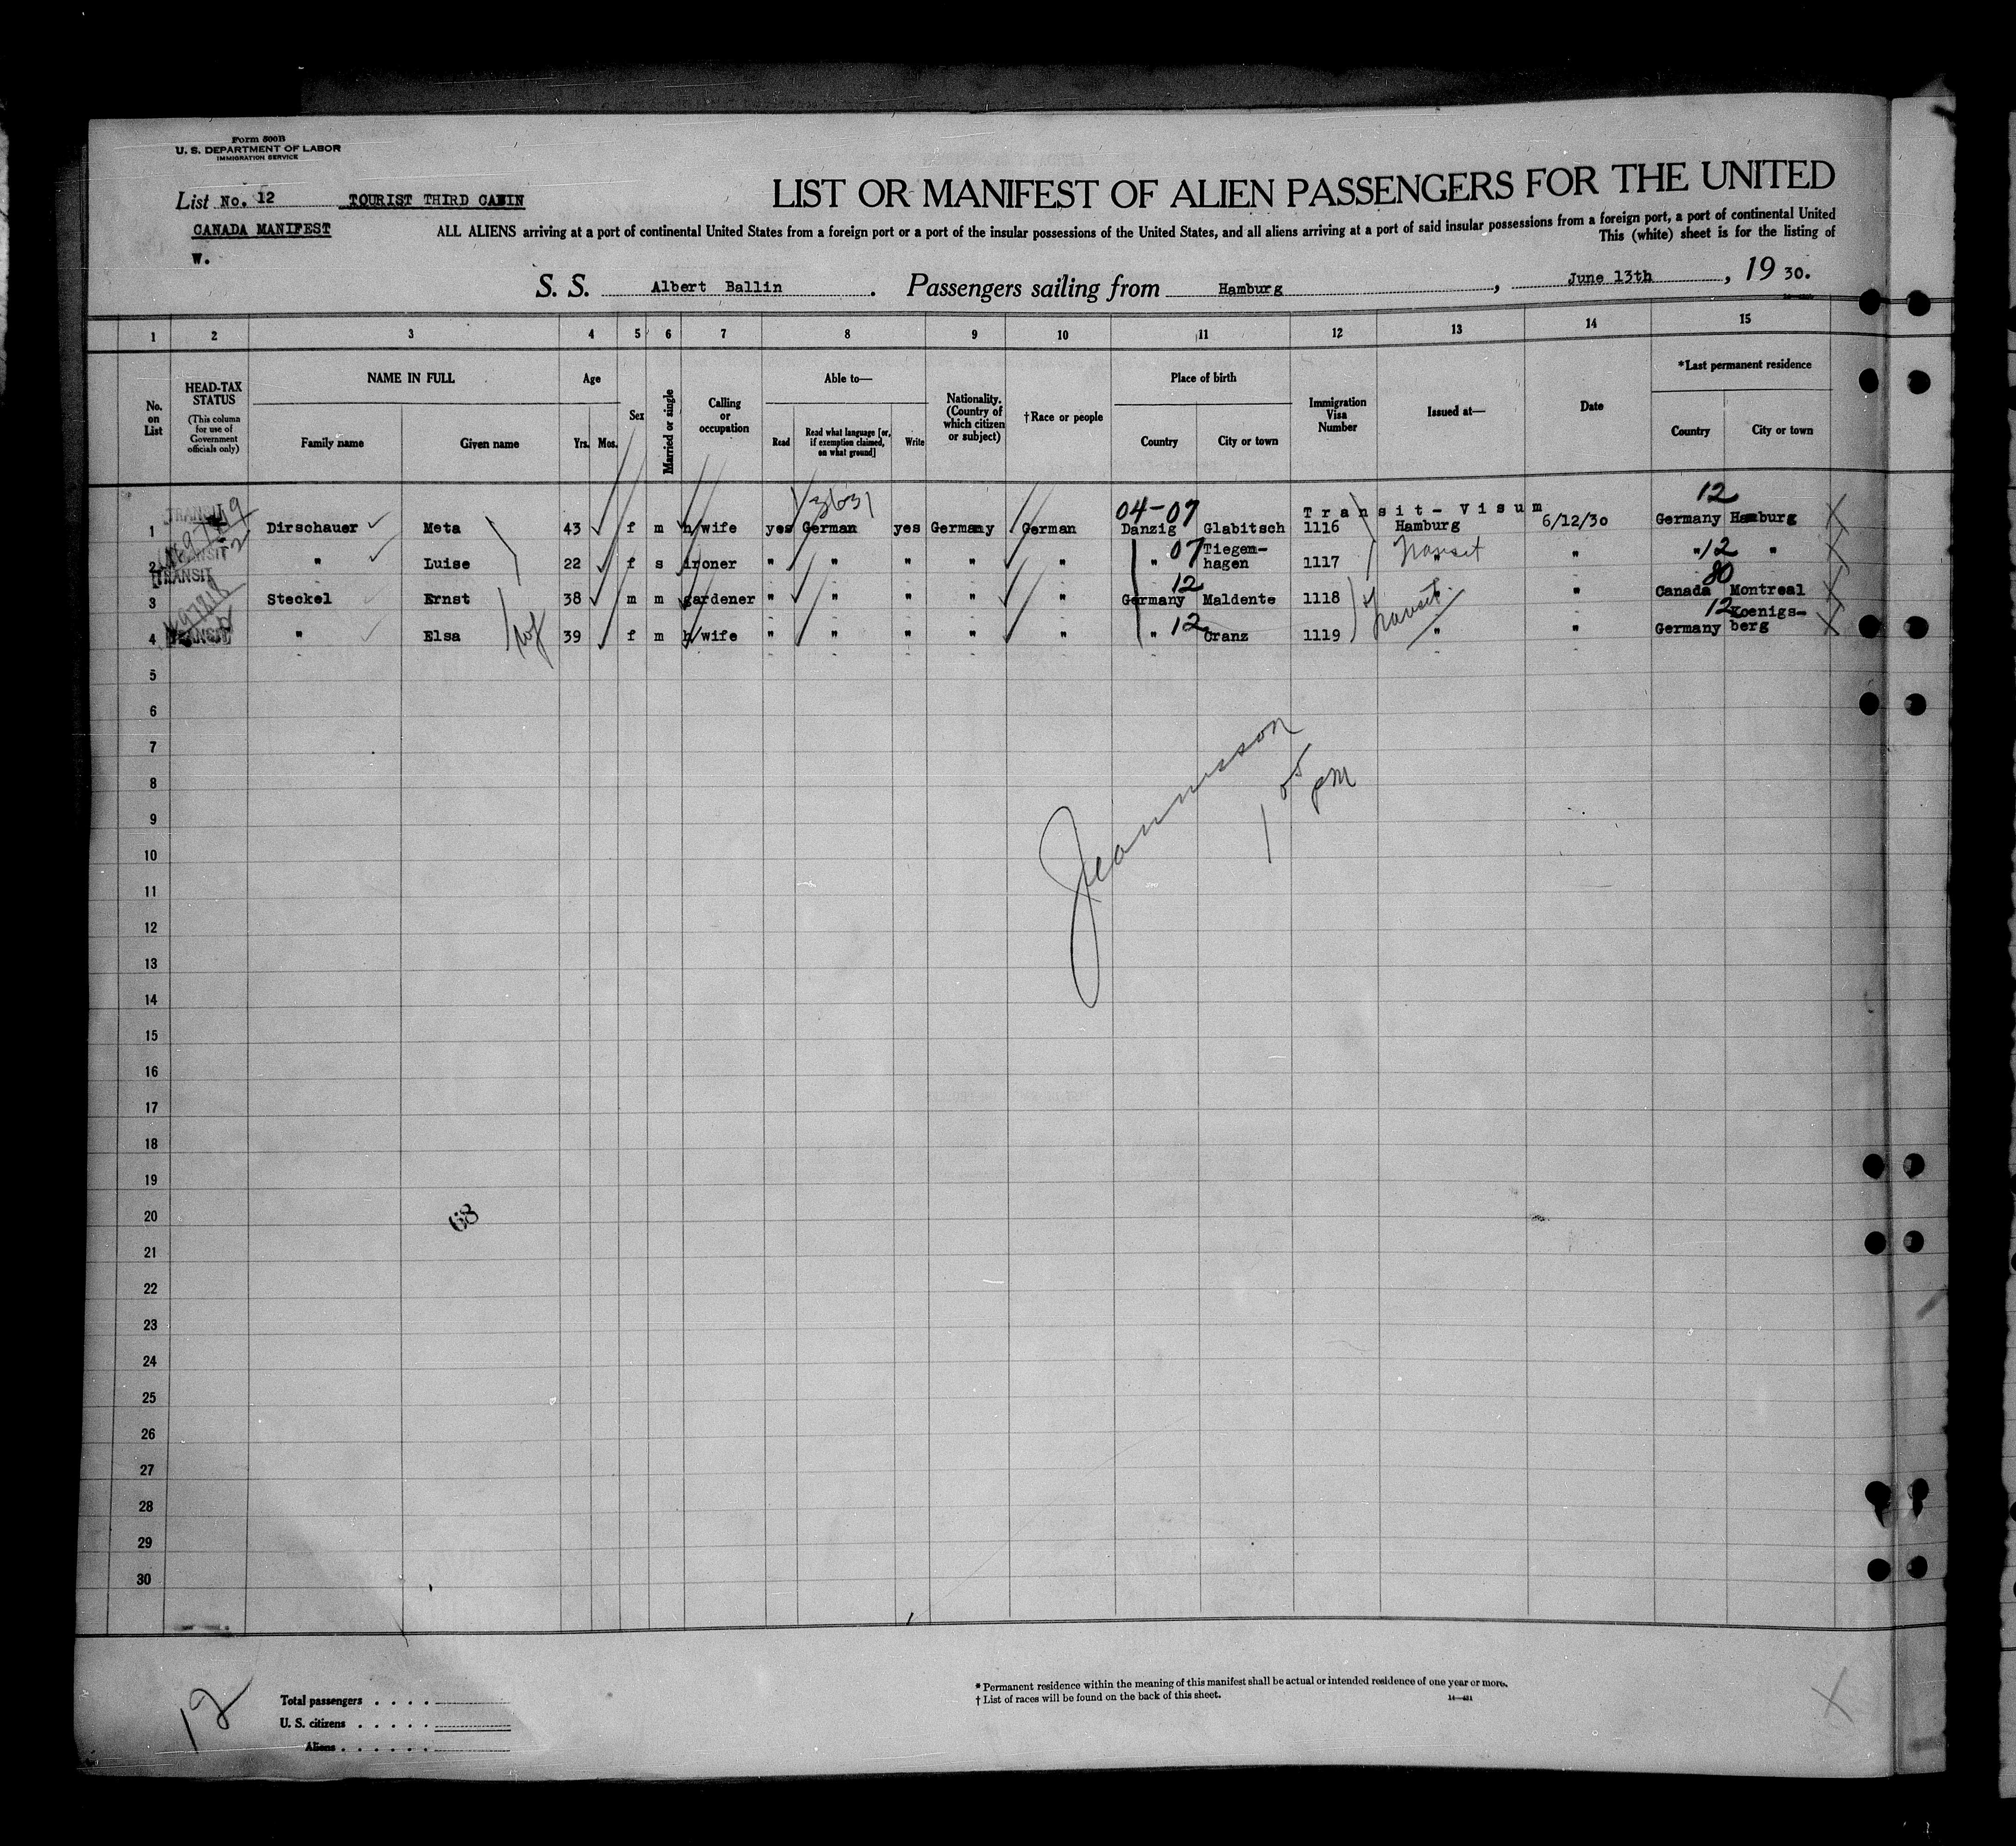 Form 500B
U. S. DEPARTMENT OF LABOR
IMMIGRATION SERVICE
List No. 12 TOURIST THIRD CABIN
CANADA MANIFEST
W.
LIST OR MANIFEST OF ALIEN PASSENGERS FOR THE UNITED
ALL ALIENS arriving at a port of continental United States from a foreign port or a port of the insular possessions of the United States, and all aliens arriving at a port of said insular possessions from a foreign port, a port of continental United
This (white) sheet is for the listing of
S. S. Albert Ballin . Passengers sailing from Hamburg , June 13th , 19 30.
1 2 3 4 5 6 7 8 9 10 11 12 13 14 15
No. on List
HEAD-TAX STATUS
(This column for use of Government officials only)
NAME IN FULL
Family name Given name
Age
Yrs. Mos.
Sex
Married or single
Calling or occupation
Able to—
Read Read what language [or, if exemption claimed, on what ground] Write
Nationality. (Country of which citizen or subject)
†Race or people
Place of birth
Country City or town
Immigration Visa Number
Issued at—
Date
*Last permanent residence
Country City or town
3631 04-07 Transit-Visum 12
TRANSIT
1 Dirschauer Meta 43 f m h/wife yes German yes Germany German Danzig Glabitsch 1116 Hamburg 6/12/30 Germany Hamburg
2 " Luise 22 f s ironer " " " " " " 07 Tiegen-hagen 1117 " Transit " " 12 "
TRANSIT
3 Steckel Ernst 38 m m gardener " " " " " Germany 12 Maldente 1118 Transit " Canada 80 Montreal
4 TRANSIT " Elsa 39 f m h/wife " " " " " " 12 Cranz 1119 " " Germany 12 Koenigs-berg
5
6
7
8
9
10
11
12
13
14
15
16
17
18
19
20
21
22
23
24
25
26
27
28
29
30
1 05 pm
68
12
Total passengers . . . .
U. S. citizens . . . . .
Aliens . . . . . .
* Permanent residence within the meaning of this manifest shall be actual or intended residence of one year or more.
† List of races will be found on the back of this sheet.